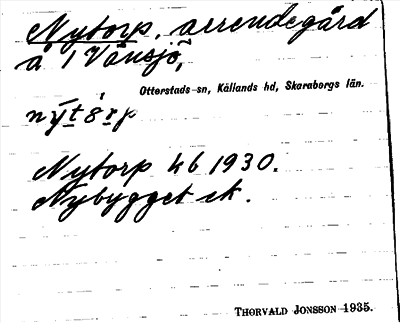 Nytorp, arrendegård
å 1 Vänsjö,
Otterstads-sn, Kållands hd, Skaraborgs län.
Nytorp kb 1930.
Nybygget ek.
THORVALD JONSSON 1935.